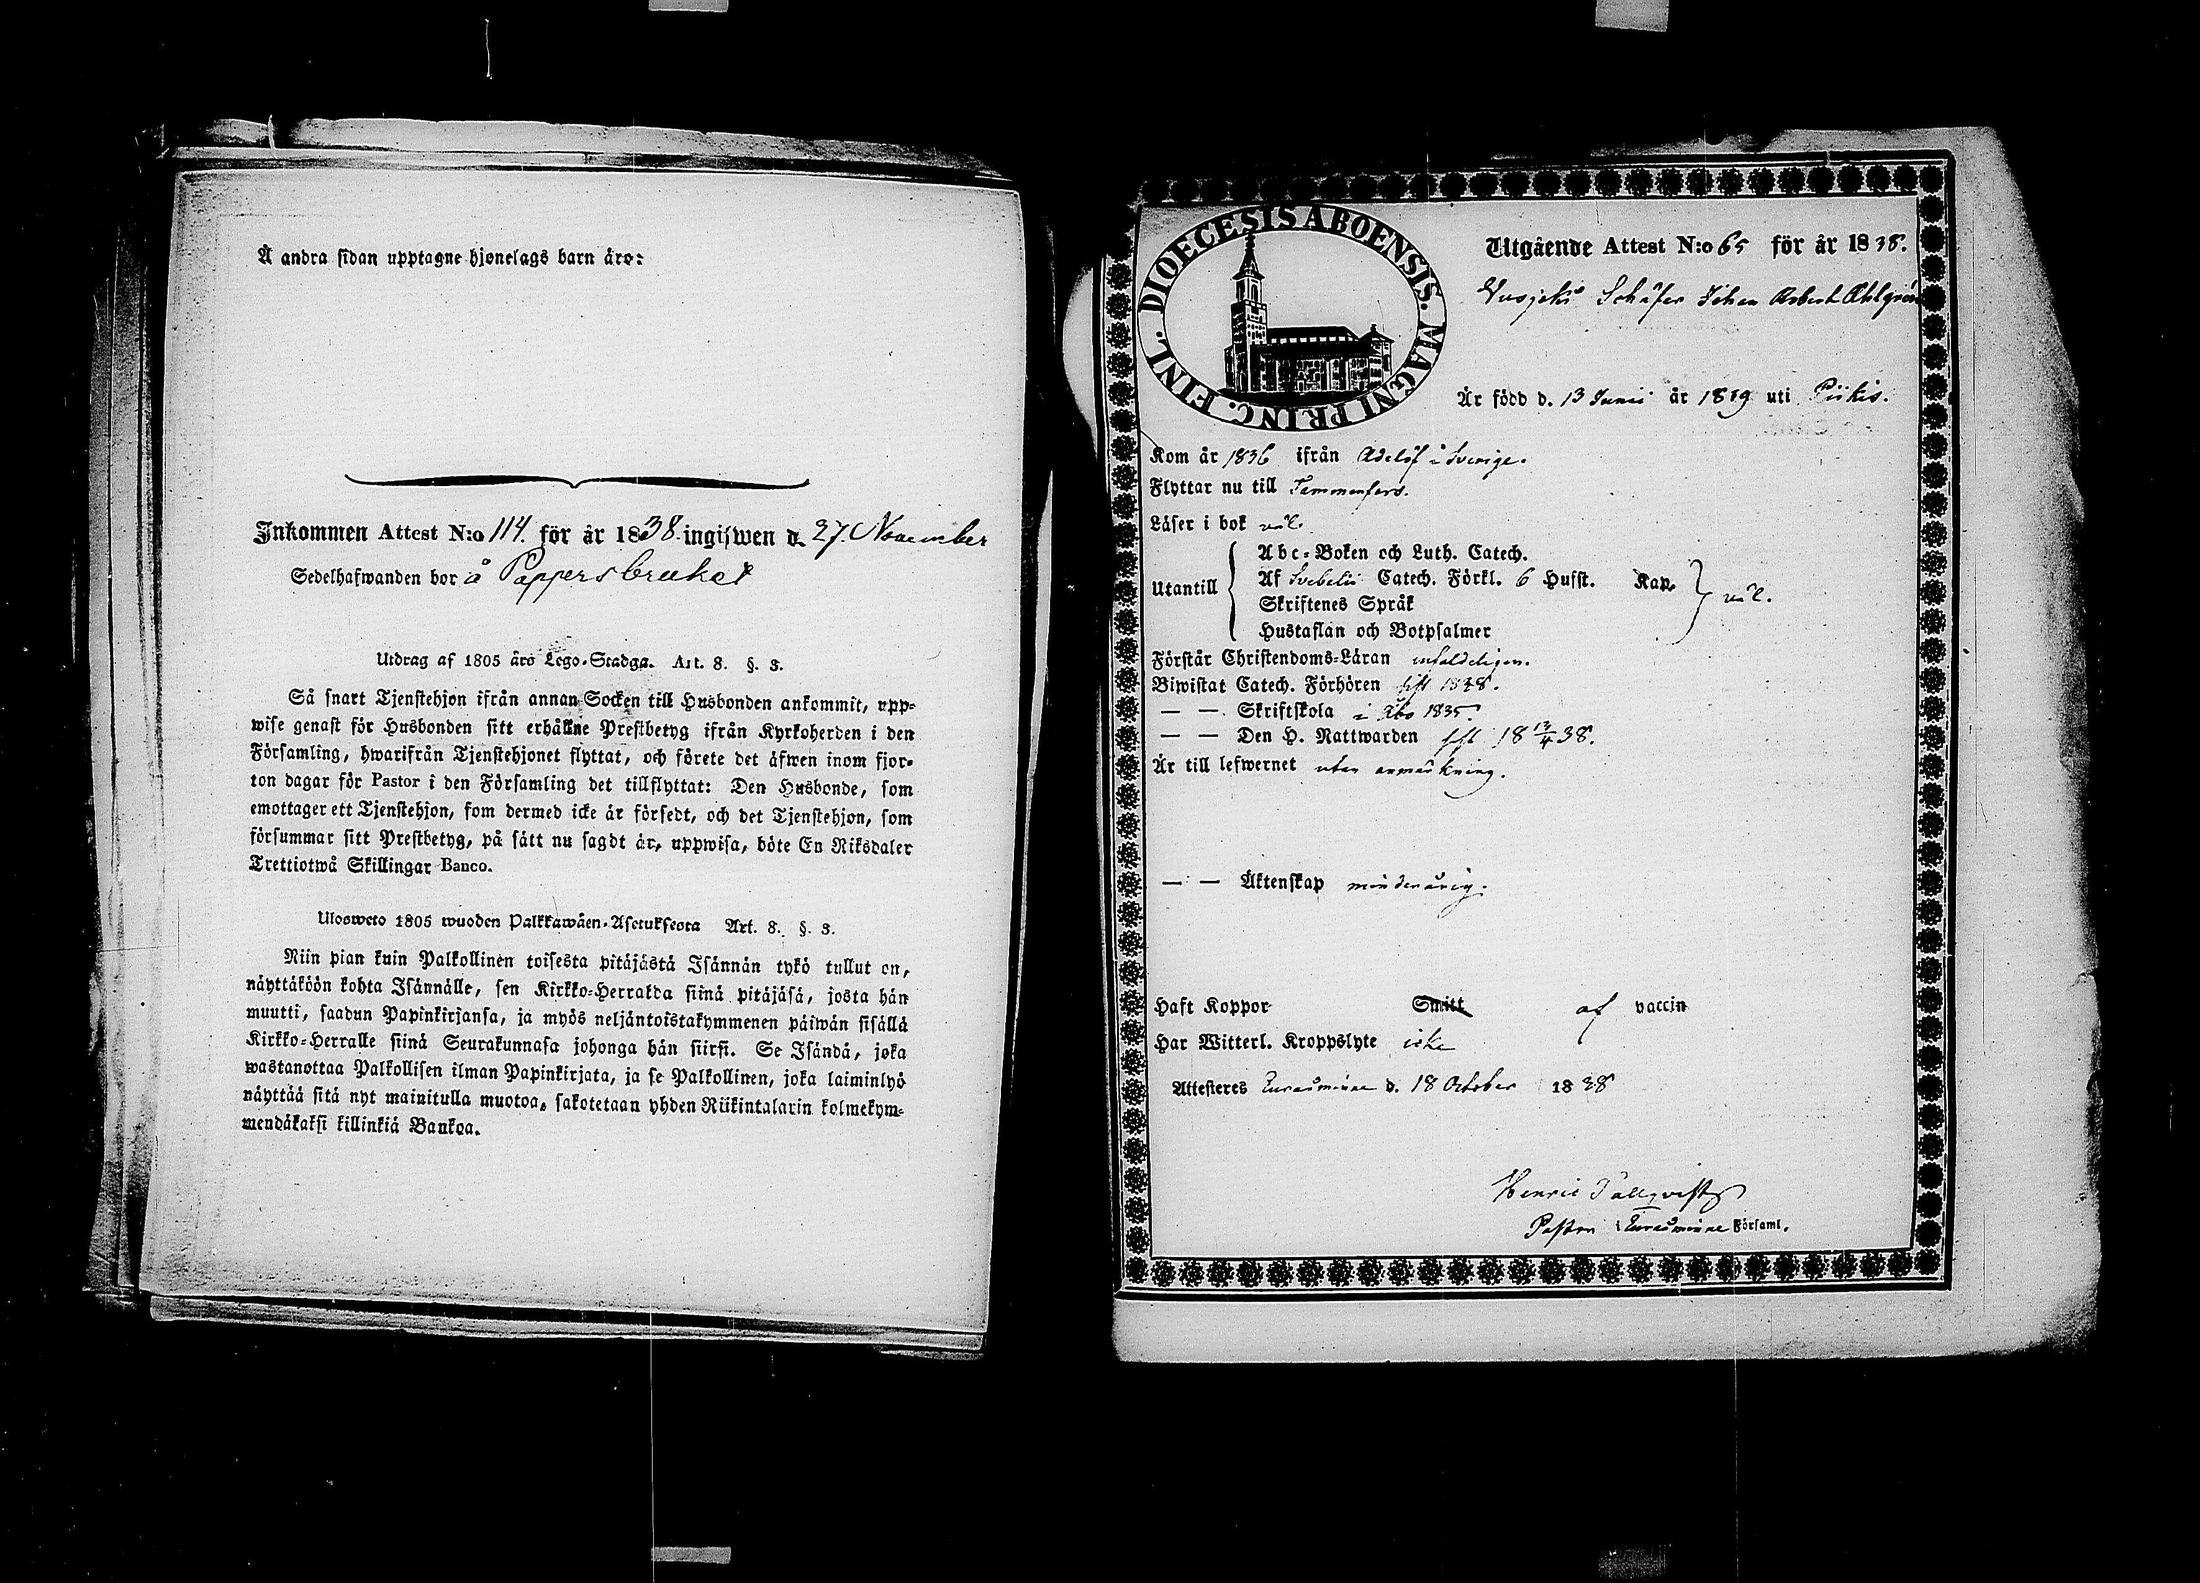 Å andra sidan upptagne hjonelags barn äro:
Inkommen Attest N:o 114. för år 1838. ingifwen d. 27. November
Sedelhafwanden bor å Pappersbruket
Utdrag af 1805 års Lego-Stadga. Art. 8. §. 3.
Så snart Tjenstehjon ifrån annan Socken till Husbonden ankommit, upp-
wise genast för Husbonden sitt erhållne Prestbetyg ifrån Kyrkoherden i den
Församling, hwarifrån Tjenstehjonet flyttat, och förete det äfwen inom fjor-
ton dagar för Pastor i den Församling det tillflyttat: Den Husbonde, som
emottager ett Tjenstehjon, som dermed icke är försedt, och det Tjenstehjon, som
försummar sitt Prestbetyg, på sätt nu sagdt är, uppwisa, böte En Riksdaler
Trettiotwå Skillingar Banco.
Ulosweto 1805 wuoden Palkkawäen-Asetuksesta Art. 8. §. 3.
Niin pian kuin Palkollinen toisesta pitäjästä Isännän tykö tullut on,
näyttäköön kohta Isännälle, sen Kirkko-Herralda siinä pitäjäsä, josta hän
muutti, saadun Papinkirjansa, ja myös neljäntoistakymmenen päiwän sisällä
Kirkko-Herralle siinä Seurakunnasa johonga hän siirsi. Se Isändä, joka
wastanottaa Palkollisen ilman Papinkirjata, ja se Palkollinen, joka laiminlyö
näyttää sitä nyt mainitulla muotoa, sakotetaan yhden Riikintalarin kolmekym-
mendäkaksi killinkiä Bankoa.
DIOECESIS ABOENSIS. MAGNI PRINC. FINL.
Utgående Attest N:o 65 för år 1838.
Schäfer Johan Robert Ahlgrén
Är född d. 13 Junii år 1819 uti Piikis.
Kom år 1836 ifrån Adelöf i Sverige.
Flyttar nu till Tammerfors.
Läser i bok väl
Utantill
Abc-Boken och Luth. Catech.
Af Svebelii Catech. Förkl. 6 Husst. Kap. väl.
Skriftenes Språk
Hustaflan och Botpsalmer
Förstår Christendoms-Läran enfaldeligen.
Biwistat Catech. Förhören sist 1838.
— — Skriftskola i Åbo 1835.
— — Den H. Nattwarden sist 18 13/4 38.
Är till lefwernet utan anmärkning.
— — Äktenskap minderårig.
Haft Koppor Smitt af vaccin
Har Witterl. Kroppslyte icke
Attesteres Euraåminne d. 18 October 1838
Henric Tallqvist
Pastor i Euraåminne Församl.